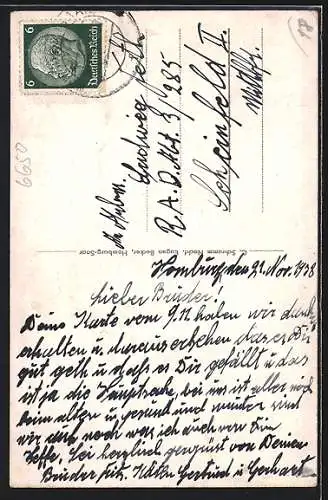 6
6
Deutsches Reich
18
6650
Ludwig
R.A.D. Abt. 3/285
Scheinfeld II.
Mittelfr.
C. Schramm Nachf. Eugen Becker, Homburg-Saar
Homburg, den 21. Nov. 1938
Lieber Bruder!
Deine Karte vom 9.11 haben wir dank
erhalten u. daraus ersehen das es Dir
gut geht u. dass es Dir gefällt u. das
ist ja die Hauptsache, bei uns ist alles noch
beim alten u. gesund und munter sind
wir auch noch was ich auch von Dir
hoffe. Sei herzlich gegrüsst von Deinem
Bruder Fritz, Käthe Gertrud u. Gerhart